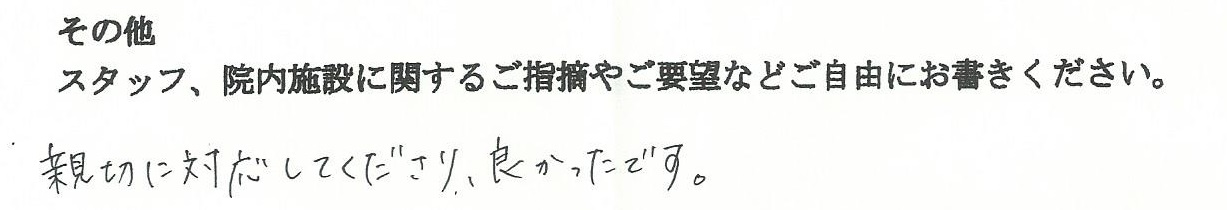 その他
スタッフ、院内施設に関するご指摘やご要望などご自由にお書きください。
親切に対応してくださり、良かったです。